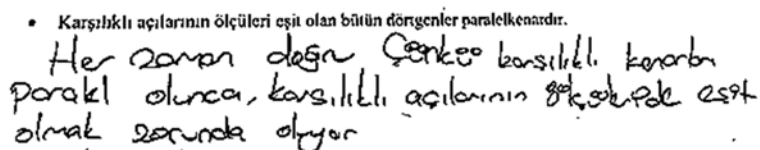 • Karşılıklı açılarının ölçüleri eşit olan bütün dörtgenler paralelkenardır.
Her zaman doğru Çünkü karşılıklı kenarları
paralel olunca, karşılıklı açılarının de eşit
olmak zorunda oluyor